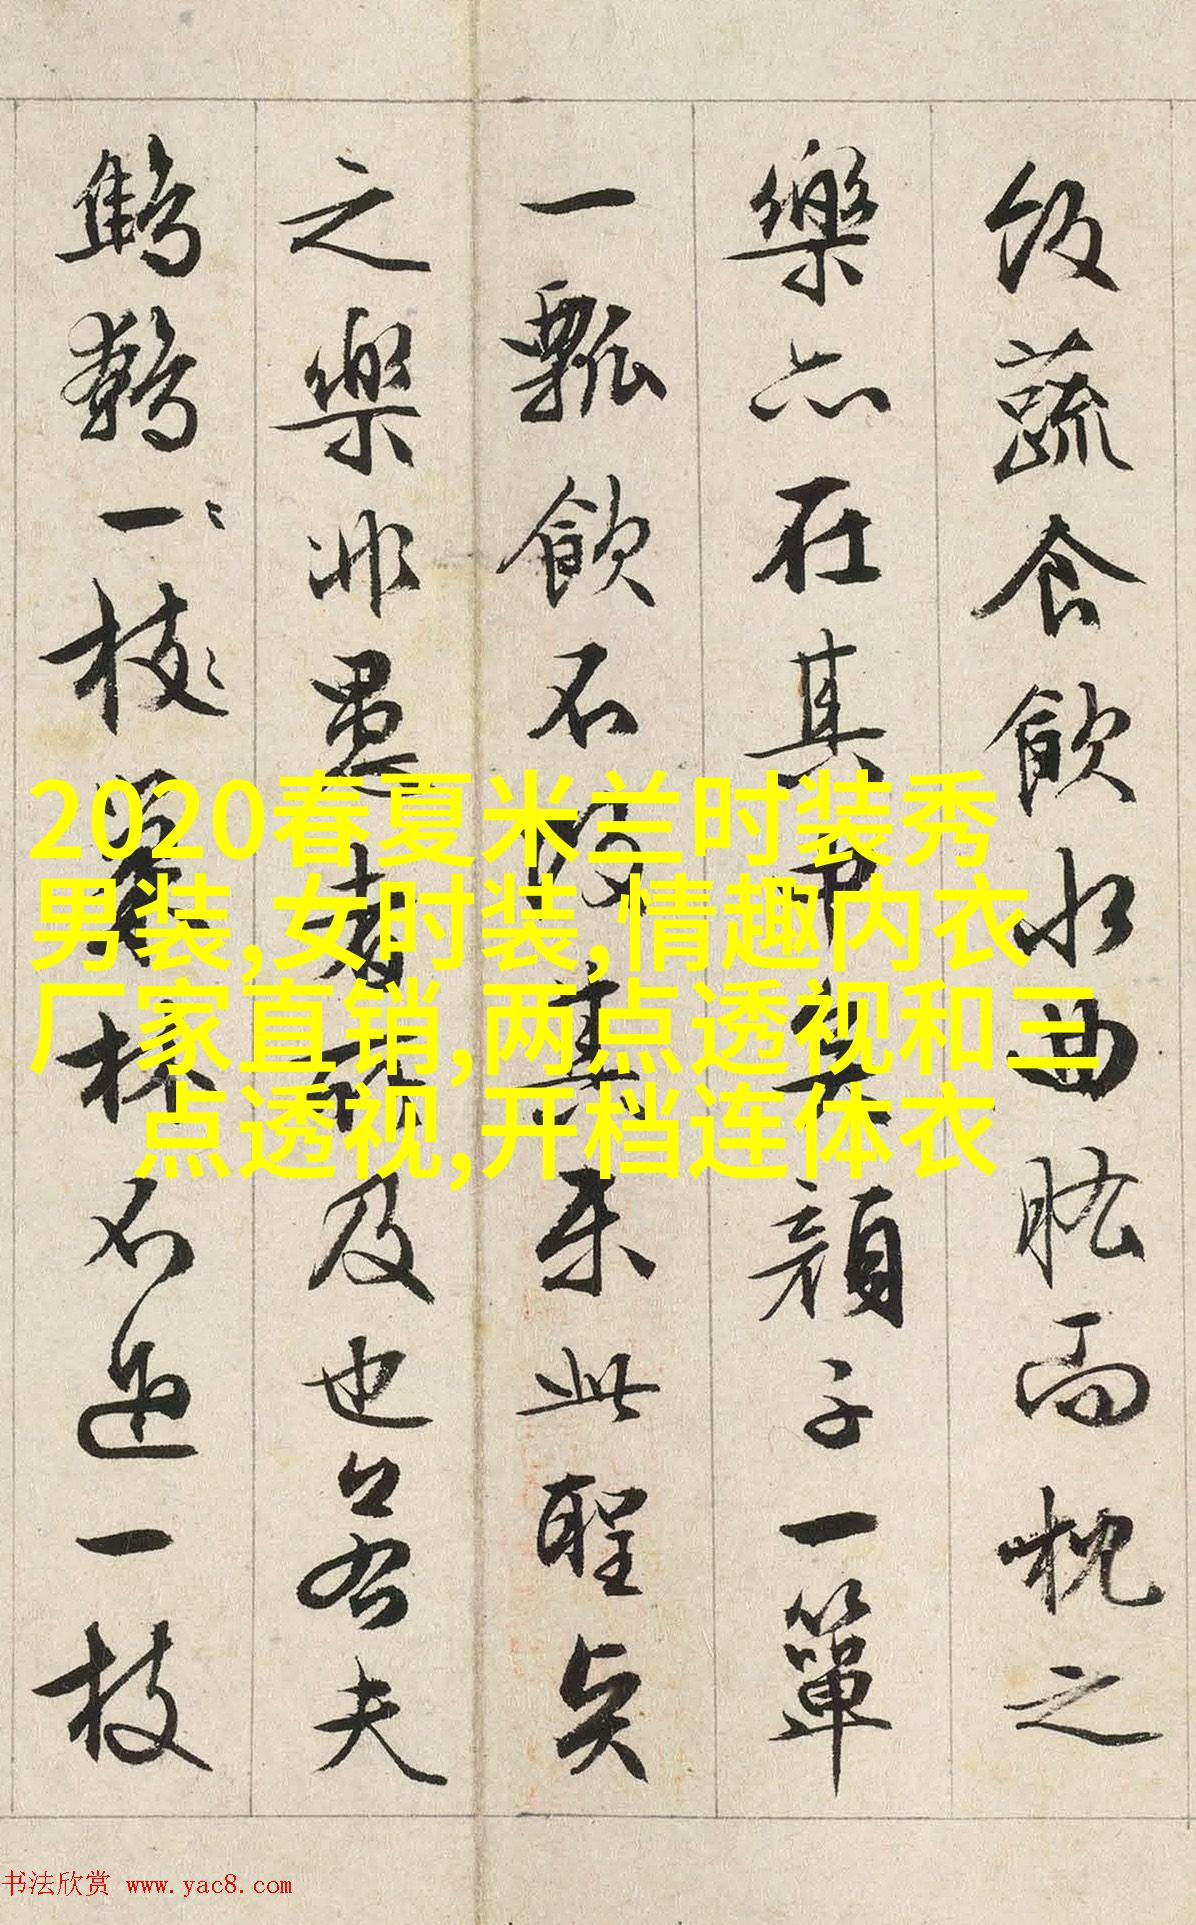 飯蔬食飲水曲肱而枕之
樂亦在其中矣顏子一簞
一瓢飲不改其樂此聖賢
之樂非愚者所及也若夫
鷦鷯一枝巢林不過一枝
2020春夏米兰时装秀
男装,女时装,情趣内衣
厂家直销,两点透视和三
点透视,开档连体衣
书法欣赏 www.yac8.com